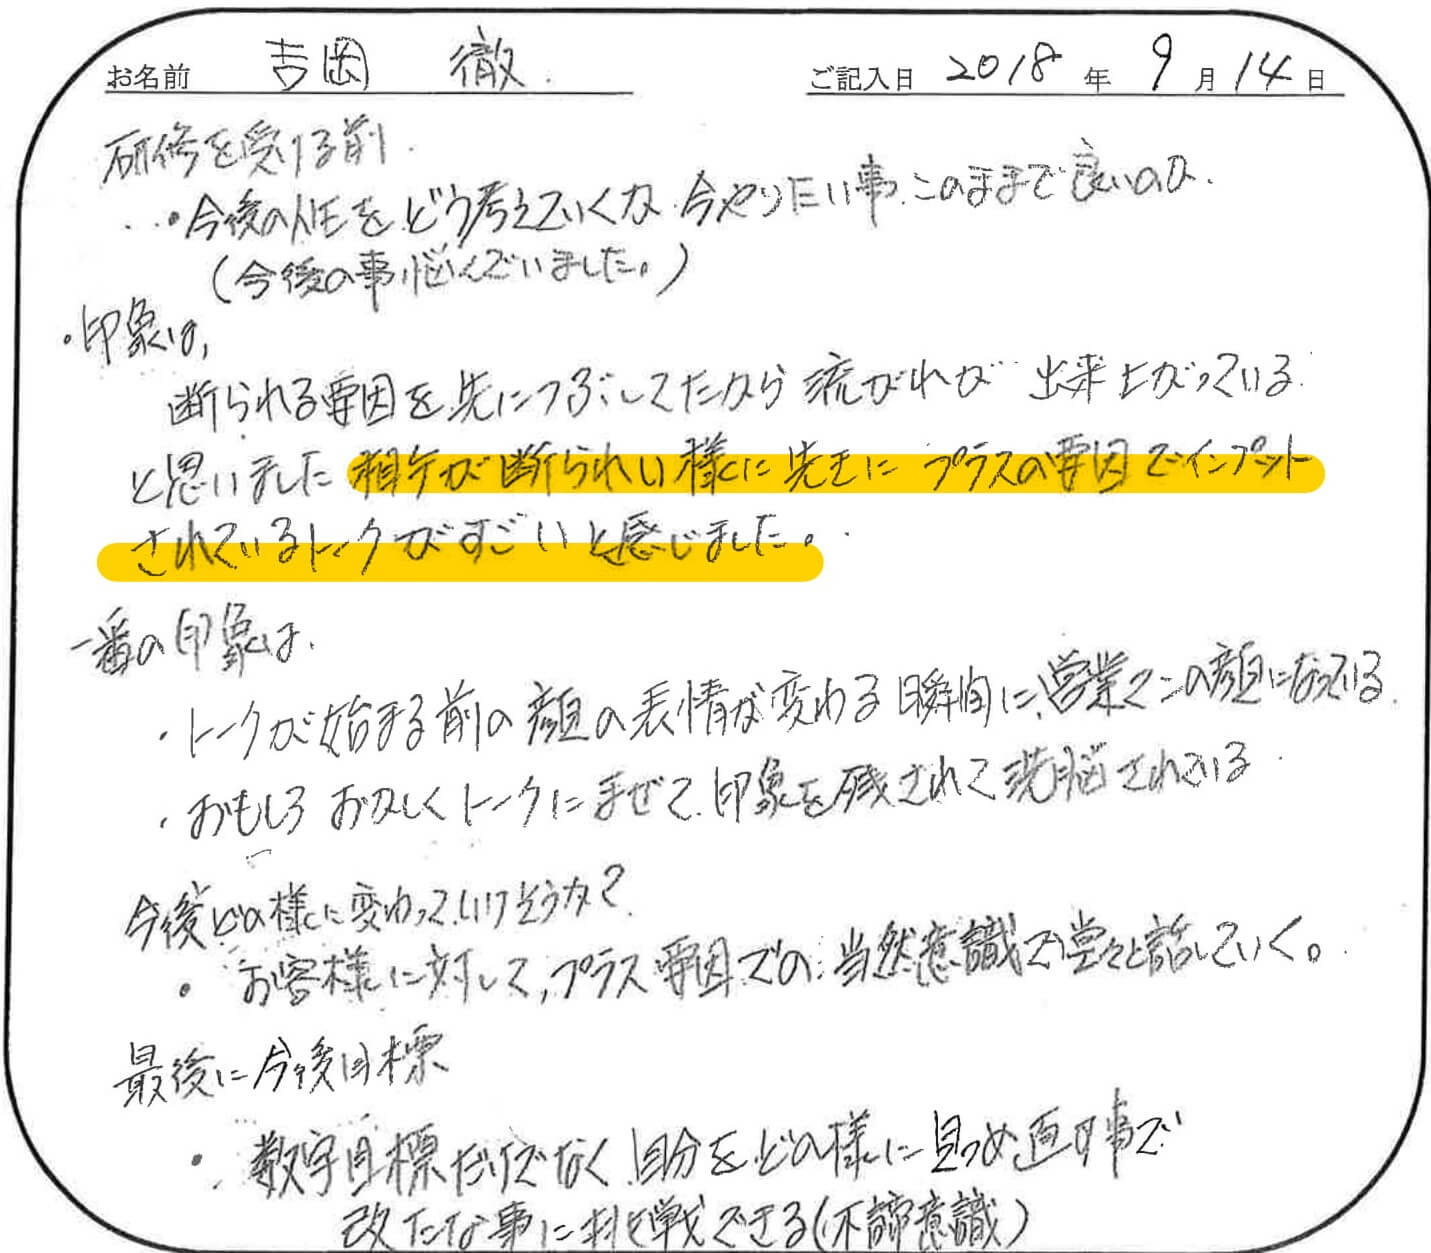 お名前 吉岡 徹 ご記入日 2018 年 9 月 14 日
研修を受ける前
・今後の人生をどう考えていくか 今やりたい事 このままで良いのか
(今後の事悩んでいました。)
・印象は、
断られる要因を先につぶしてたから 流がれが 出来上がっている
と思いました 相手が断られい様に先に プラスの要因でインプット
されているトークがすごいと感じました。
一番の印象は、
・トークが始まる前の顔の表情が変わる瞬間に、営業でこの顔になっている
・おもしろおかしくトークにまぜて、印象を残されて洗脳されている
今後どの様に変わっていけそうか?
・お客様に対して、プラス要因での当然意識で堂々と話していく。
最後に今後目標
・数字目標だけでなく、自分をどの様に見つめ直す事で
改たな事に挑戦できる(不諦意識)